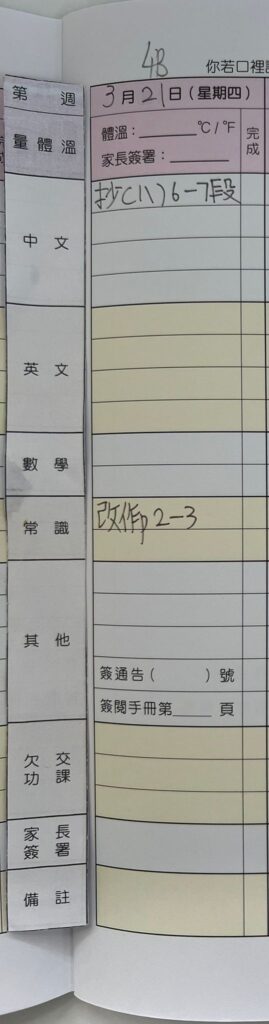 4B
你若口裡
第 週
3月21日(星期四)
量體溫
體溫:______°C/°F
家長簽署:______
完成
中文
抄(八)6-7段
英文
數學
常識
改作p2-3
其他
簽通告( )號
簽閱手冊第____頁
欠交
功課
家長
簽署
備註